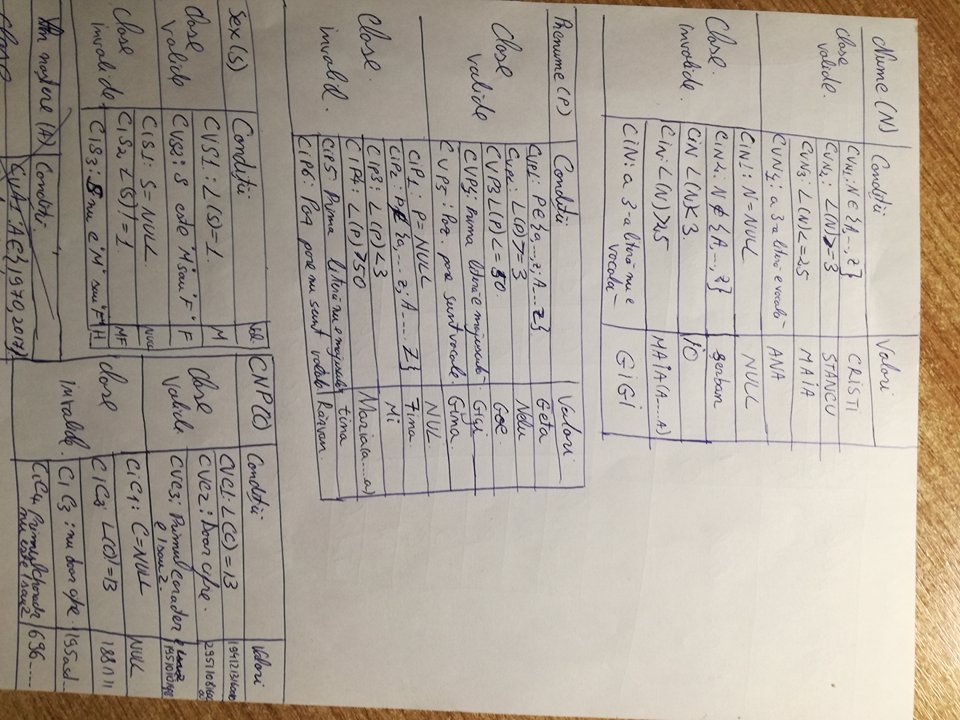 Nume (N) Condiții Valori
Clase valide. CVN1: N∈{A,...,Z} CRISTI
CVN2: L(N)>=3 STANCU
CVN3: L(N)<=25 MAIA
CVN4: a 3-a literă e vocală ANA
Clase invalide. CIN1: N=NULL NULL
CIN2: N∉{A,...,Z} Șerban
CIN L(N)<3. IO
CIN: L(N)>25 MAIA(A....A)
CIN: a 3-a literă nu e
vocală GIGI
Prenume (P) Condiții Valori
Clase valide CVP1: P∈{a,..,z; A...Z} Geta
CVP2: L(P)>=3 Nelu
CVP3 L(P)<=50 Goe
CVP4: Prima literă e majusculă Gigi
CVP5: Poz. pare sunt vocale. Gina.
Clase invalid. CIP1: P=NULL NUL
CIP2: P∉{a,...z; A....Z} 7ina.
CIP3: L(P)<3 Mi
CIP4: L(P)>50 Maria(a....a)
CIP5: Prima literă nu e majusculă tina
CIP6: Poz pare nu sunt vocale Răzvan.
Sex (S) Condiții Val.
Clase valide CVS1: L(S)=1. M
CVS2: S este "M" sau "F" F
Clase invalide. CIS1: S=NULL NULL
CIS2 L(S)!=1 MF
CIS3: S nu e "M" sau "F" H
CNP (C) Condiții Valori
Clase valide CVC1: L(C)=13
CVC2: Doar cifre.
CVC3: Primul caracter e
e 1 sau 2.
Clase invalide. CIC1: C=NULL NULL
CIC2: L(C)!=13
CIC3: nu doar cifre 195asd...
CIC4 Primul
nu este 1 sau 2 696....
naștere (A) Condiții.
Clase CVA1: A∈{1970,2017}